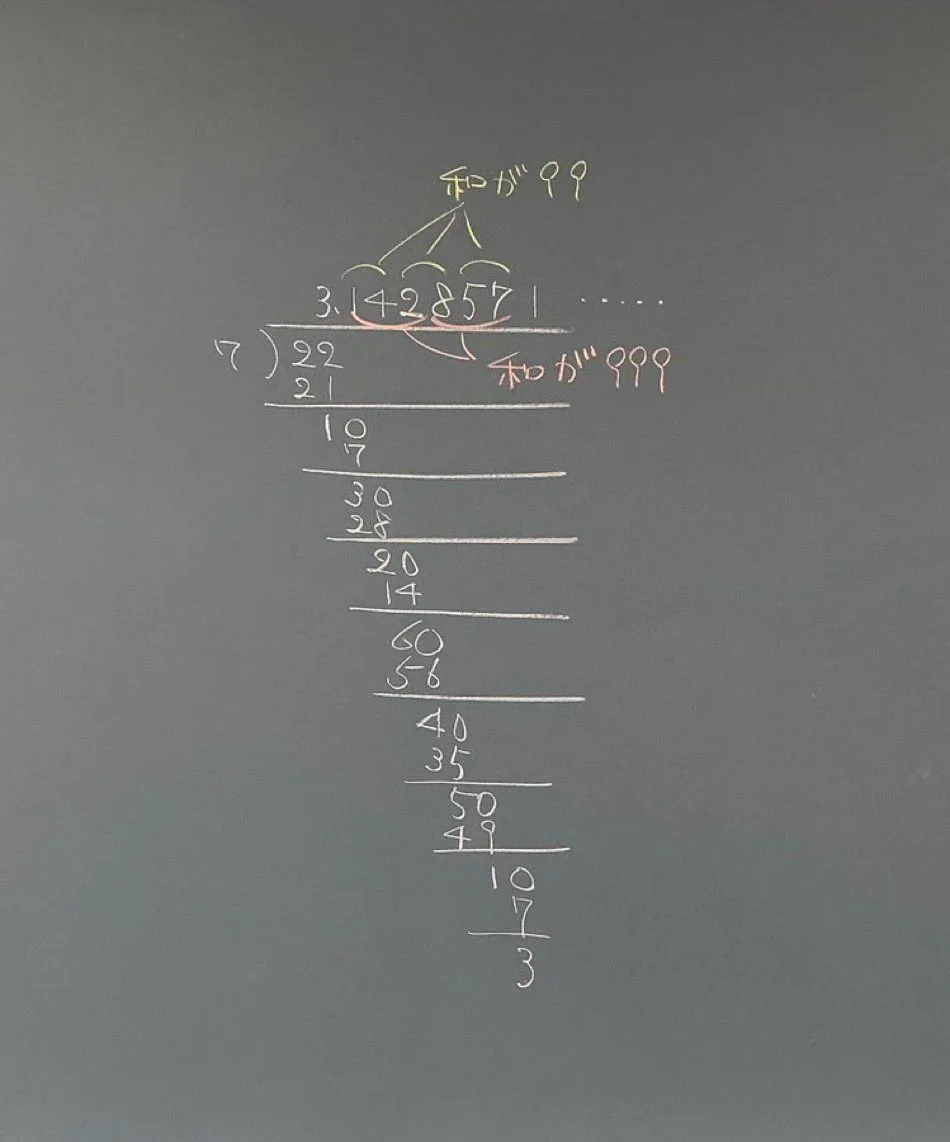 和が99
3.1428571 ……
7)22
和が999
21
10
7
30
28
20
14
60
56
40
35
50
49
10
7
3